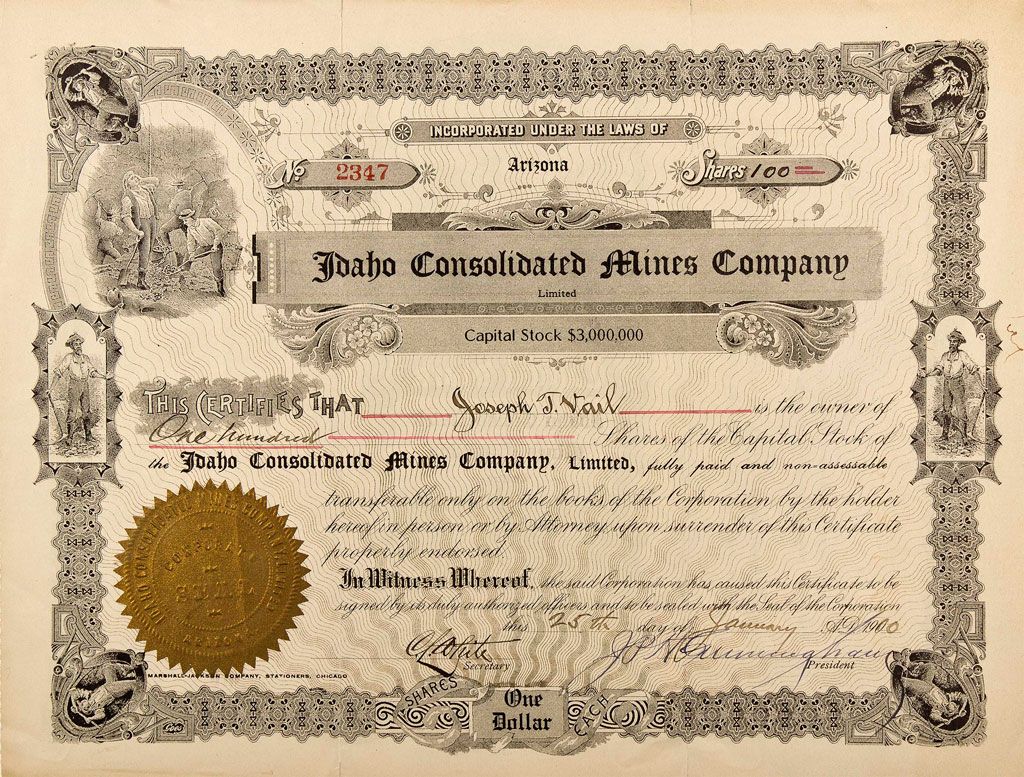 INCORPORATED UNDER THE LAWS OF
Arizona
No 2347
Shares 100
Idaho Consolidated Mines Company
Limited
Capital Stock $3,000,000
THIS CERTIFIES THAT Joseph T. Vail is the owner of
One hundred Shares of the Capital Stock of
the Idaho Consolidated Mines Company, Limited, fully paid and non-assessable
transferable only on the books of the Corporation by the holder
hereof in person or by Attorney upon surrender of this Certificate
properly endorsed.
In Witness Whereof, the said Corporation has caused this Certificate to be
signed by its duly authorized officers and to be sealed with the Seal of the Corporation
this 25th day of January A.D. 1910
White
Secretary
Cunningham
President
IDAHO CONSOLIDATED MINES COMPANY, LIMITED
CORPORATE
ARIZONA
MARSHALL-JACKSON COMPANY, STATIONERS, CHICAGO
SHARES One Dollar EACH